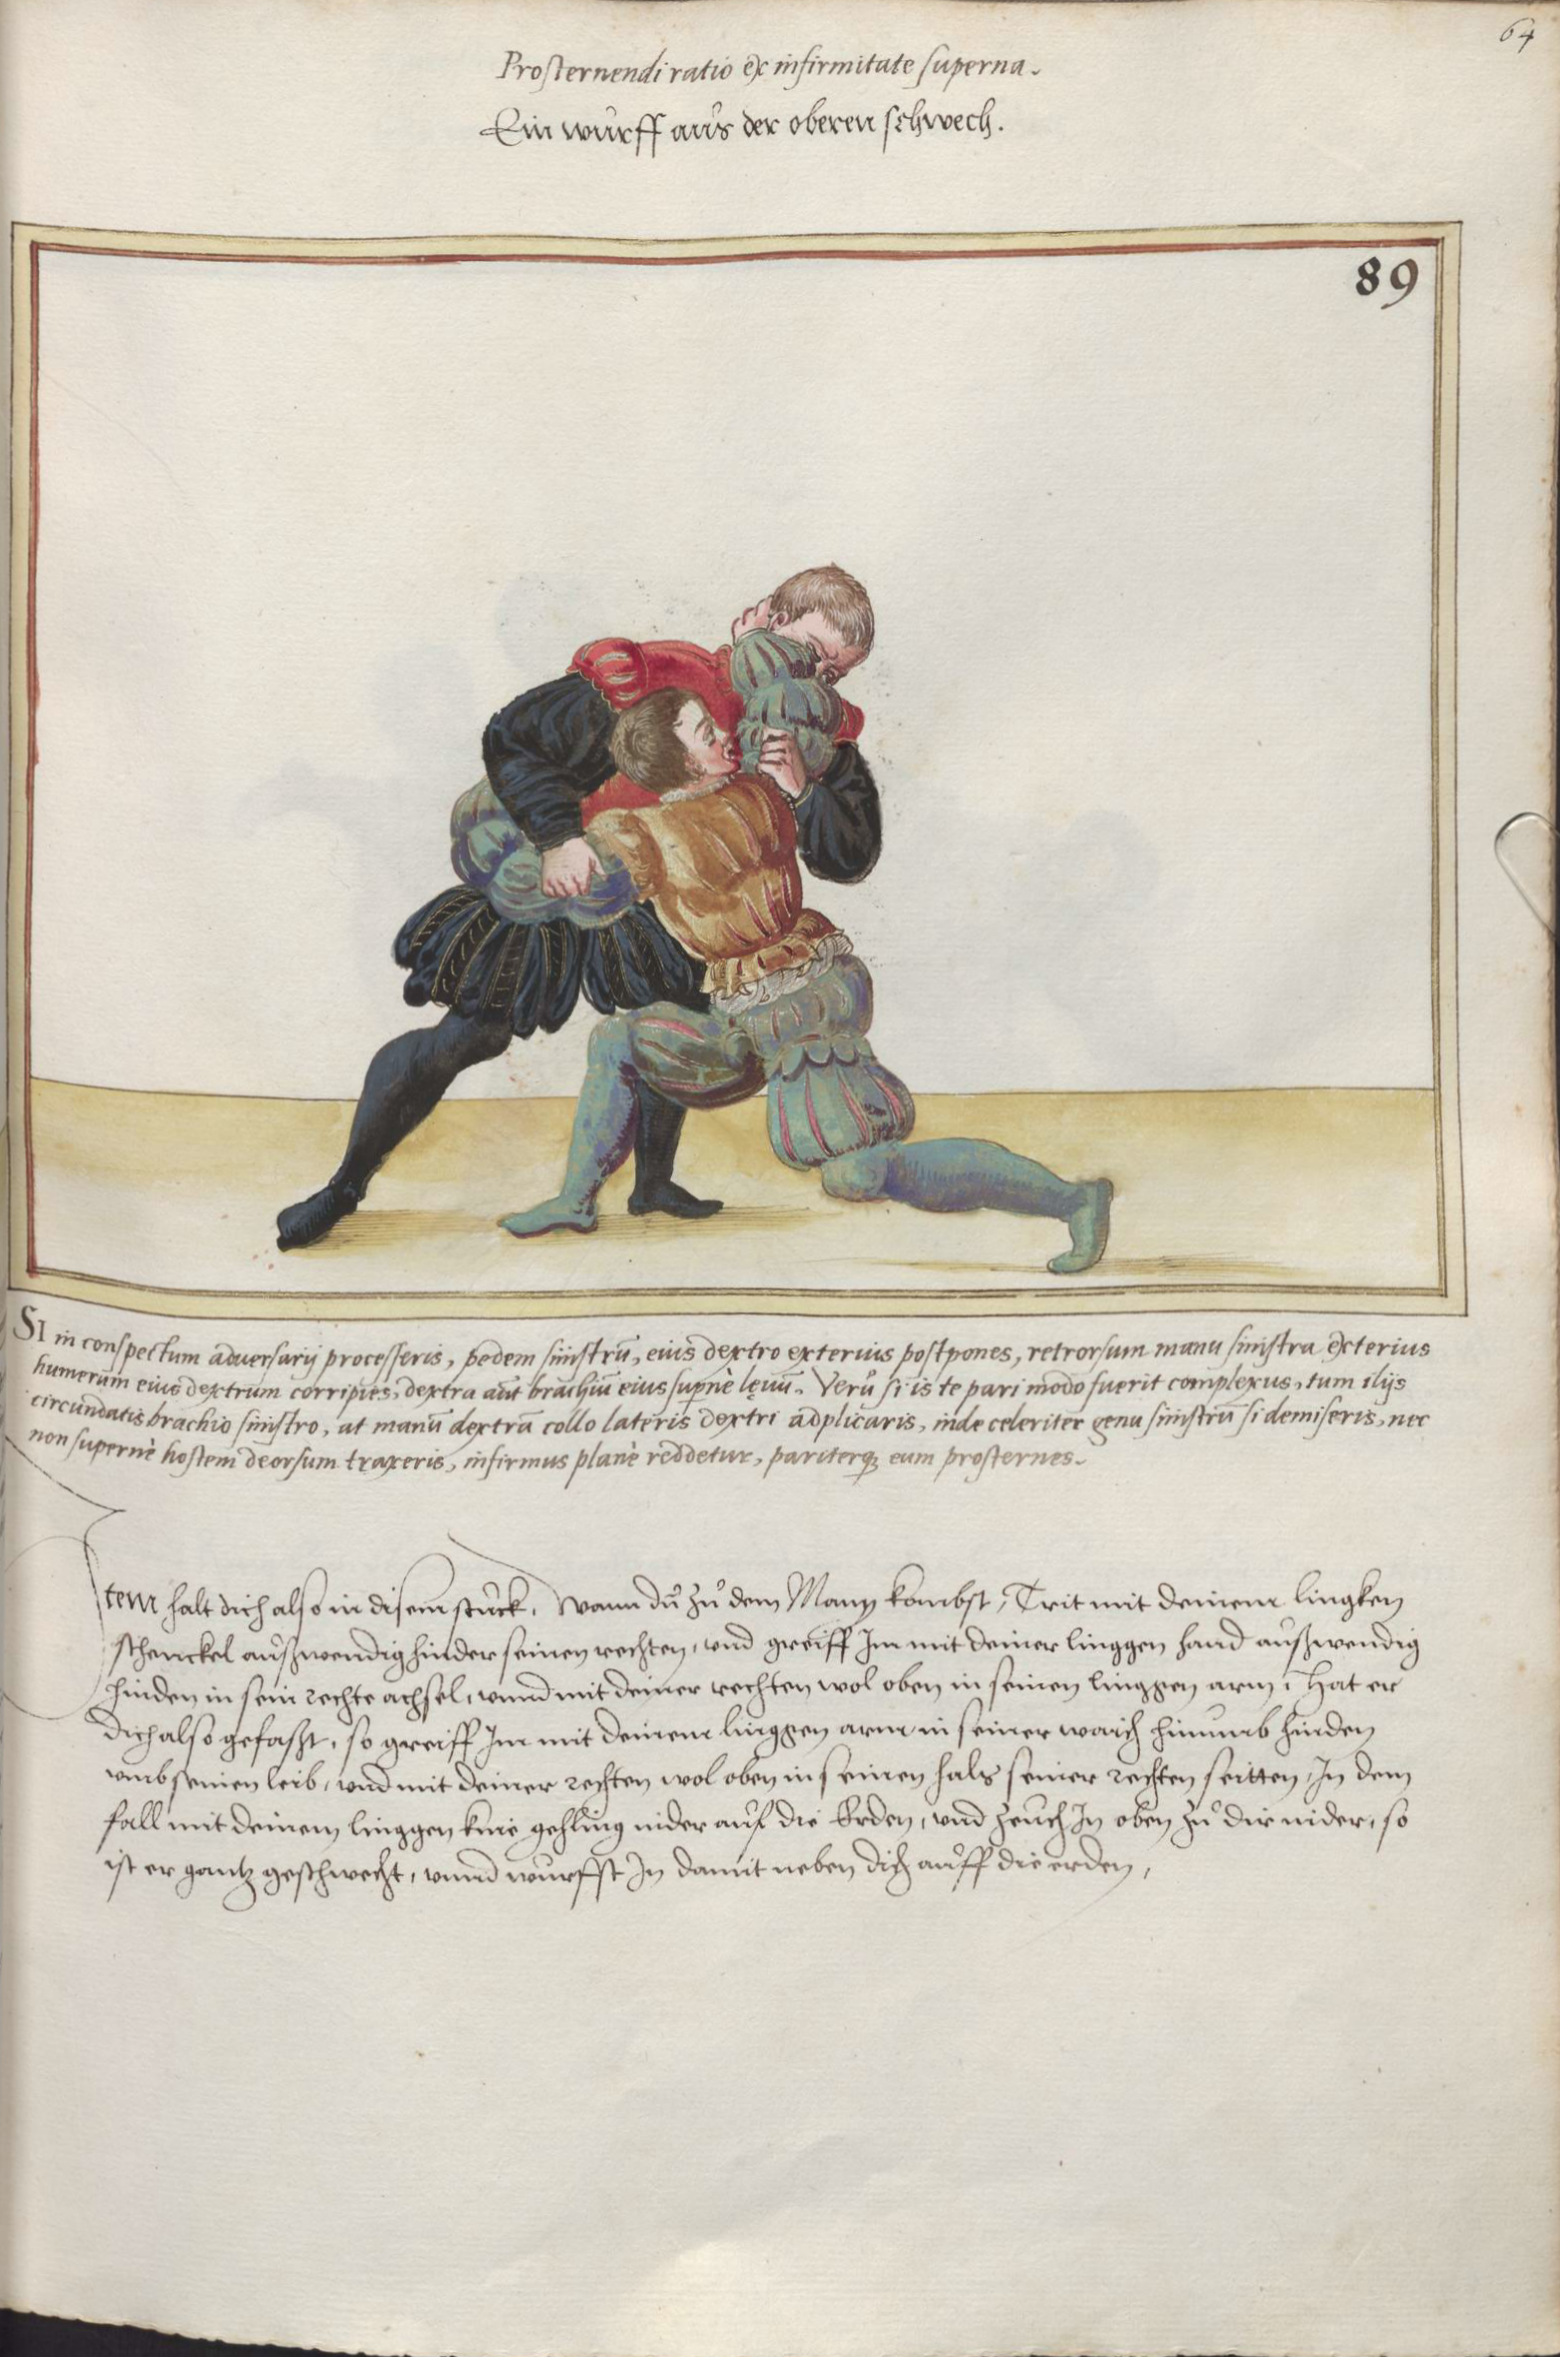 64
Prosternendi ratio ex infirmitate superna.
Ein wurff aus der oberen schwech.
89
SI in conspectum adversarij processeris, pedem sinistrū, eius dextro exterius postpones, retrorsum manu sinistra exterius
humerum eius dextrum corripies, dextra aūt brachiū eius supernè lęuū. Verū si is te pari modo fuerit complexus, tum ilijs
circundatis brachio sinistro, at manū dextrā collo lateris dextri adplicaris, inde celeriter genu sinistrū si demiseris, nec
non supernè hostem deorsum traxeris, infirmus planè reddetur, pariterq; eum prosternes.
Item halt dich also in disem stuck, Wann dū zū dem Mann kombst, Trit mit deinem lingken
schenckel außwendig hinder seinen rechten, und greiff Im mit deiner linggen hand außwendig
hinden in sein rechte achsel, unnd mit deiner rechten wol oben in seinen linggen arm, Hat er
dich also gefaßt, so greiff Im mit deinem linggen arm in seiner waich hinumb hinden
umb seinen leib, und mit deiner rechten wol oben in seinen hals seiner rechten seitten, In dem
fall mit deinem linggen knie gehling nider auf die Erden, und zeuch In oben zū dir nider, so
ist er gantz geschwecht, unnd wurffst In damit neben dich auff die erden,